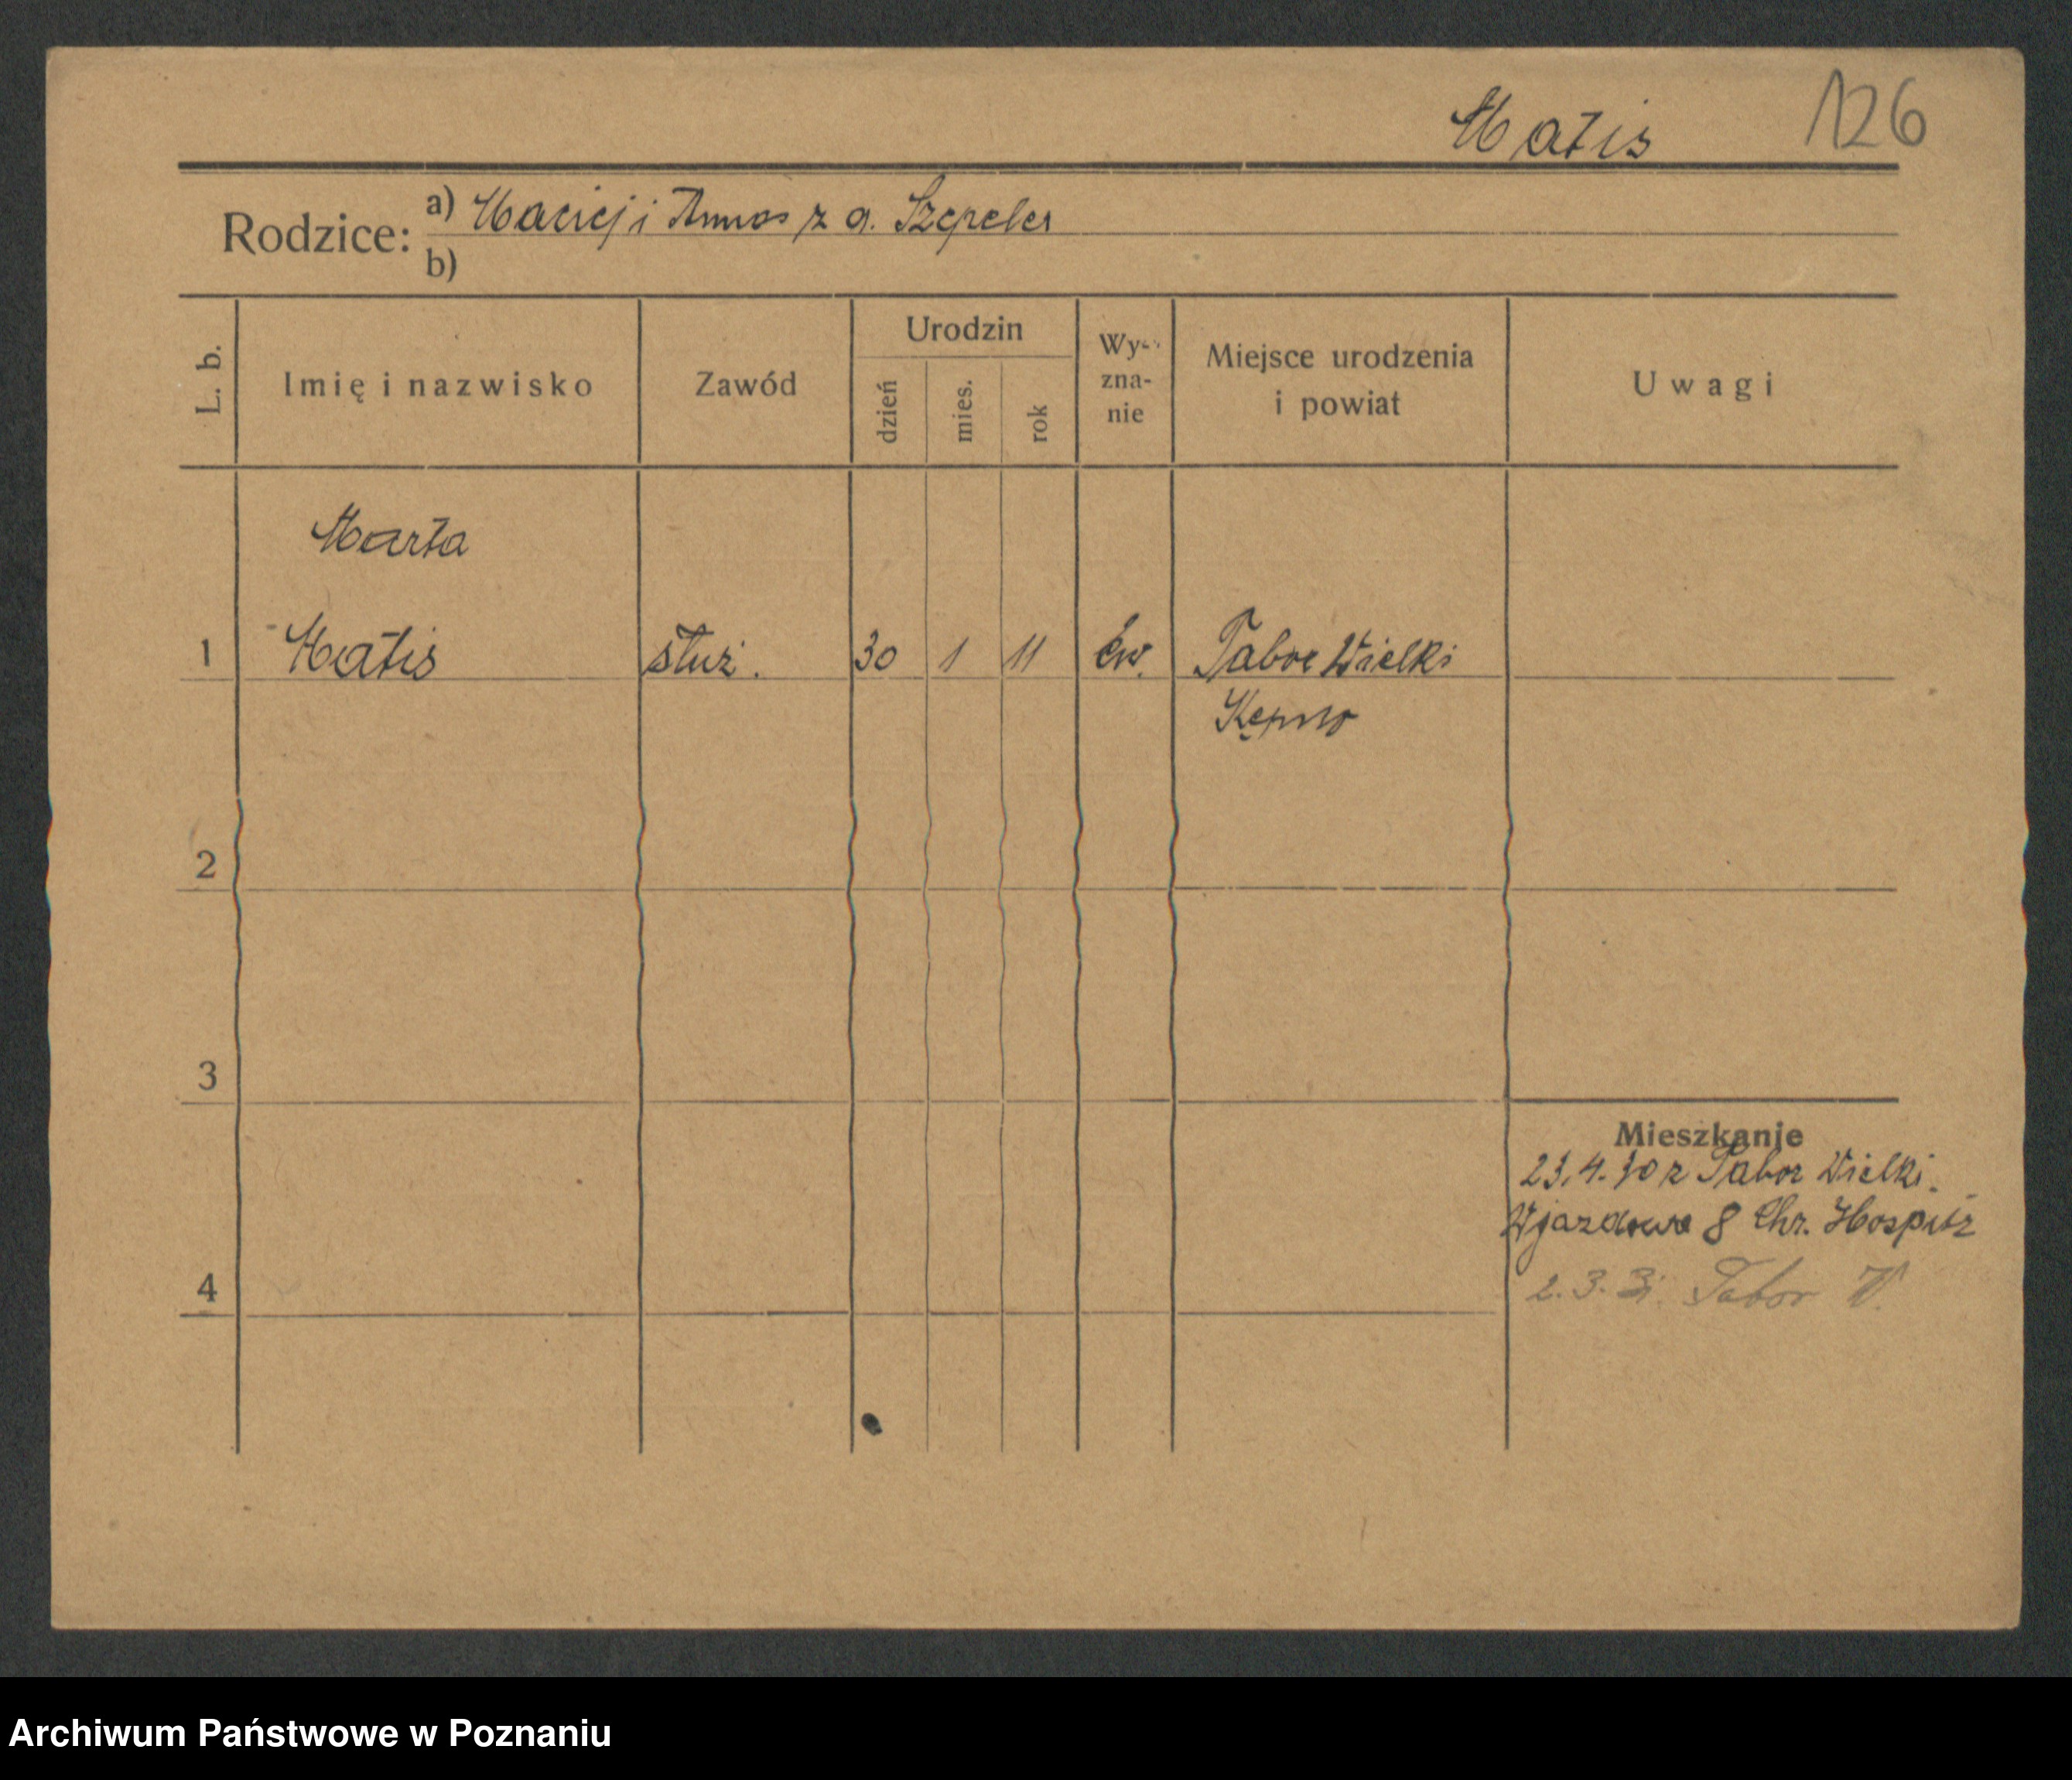 Matis 126
Rodzice: a) Maciej i Anna z d. Szepeler
b)
L. b. Imię i nazwisko Zawód Urodzin dzień mies. rok Wy- zna- nie Miejsce urodzenia i powiat Uwagi
Marta
1 Matis służ. 30 1 11 ew. Tabor Wielki
Kępno
2
3
Mieszkanie
23.4.30 z Tabor Wielki.
Wjazdowa 8 Chr. Hospiz
4 2.3.31. Tabor W.
Archiwum Państwowe w Poznaniu